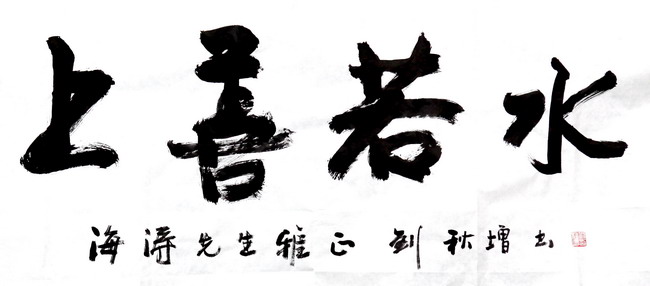 上善若水
海涛先生雅正 刘秋增书